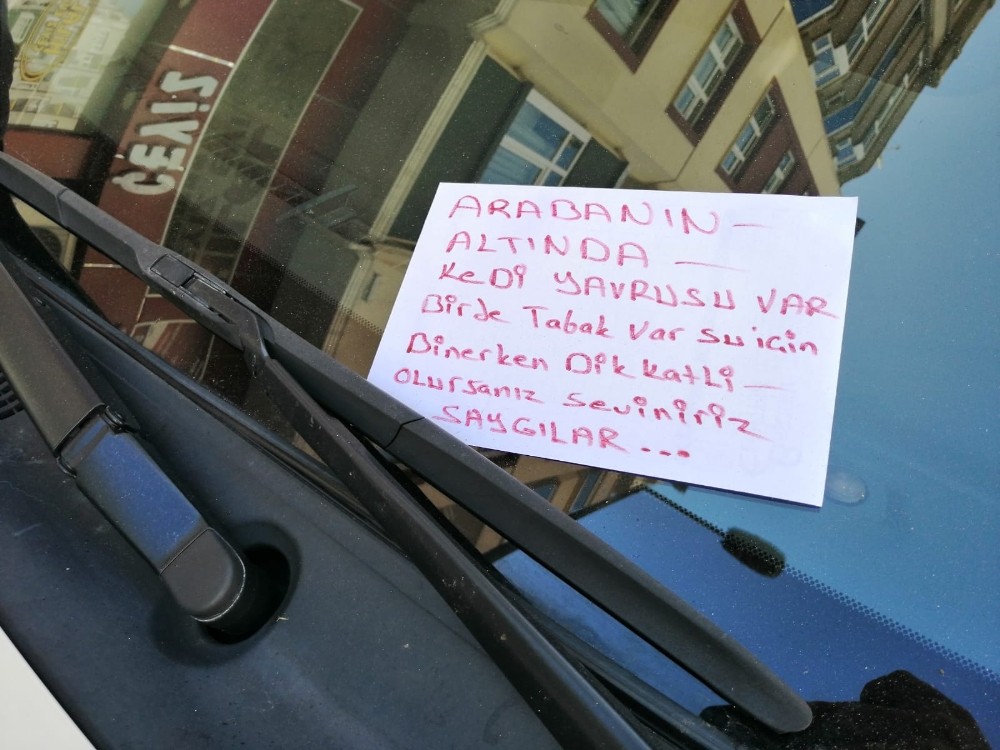 ARABANIN —
ALTINDA —
KeDi YAVRUSU VAR
Birde Tabak Var su icin
Binerken Dikkatli —
OLursanız seviniriz
SAYGILAR...
ÇEYİZ